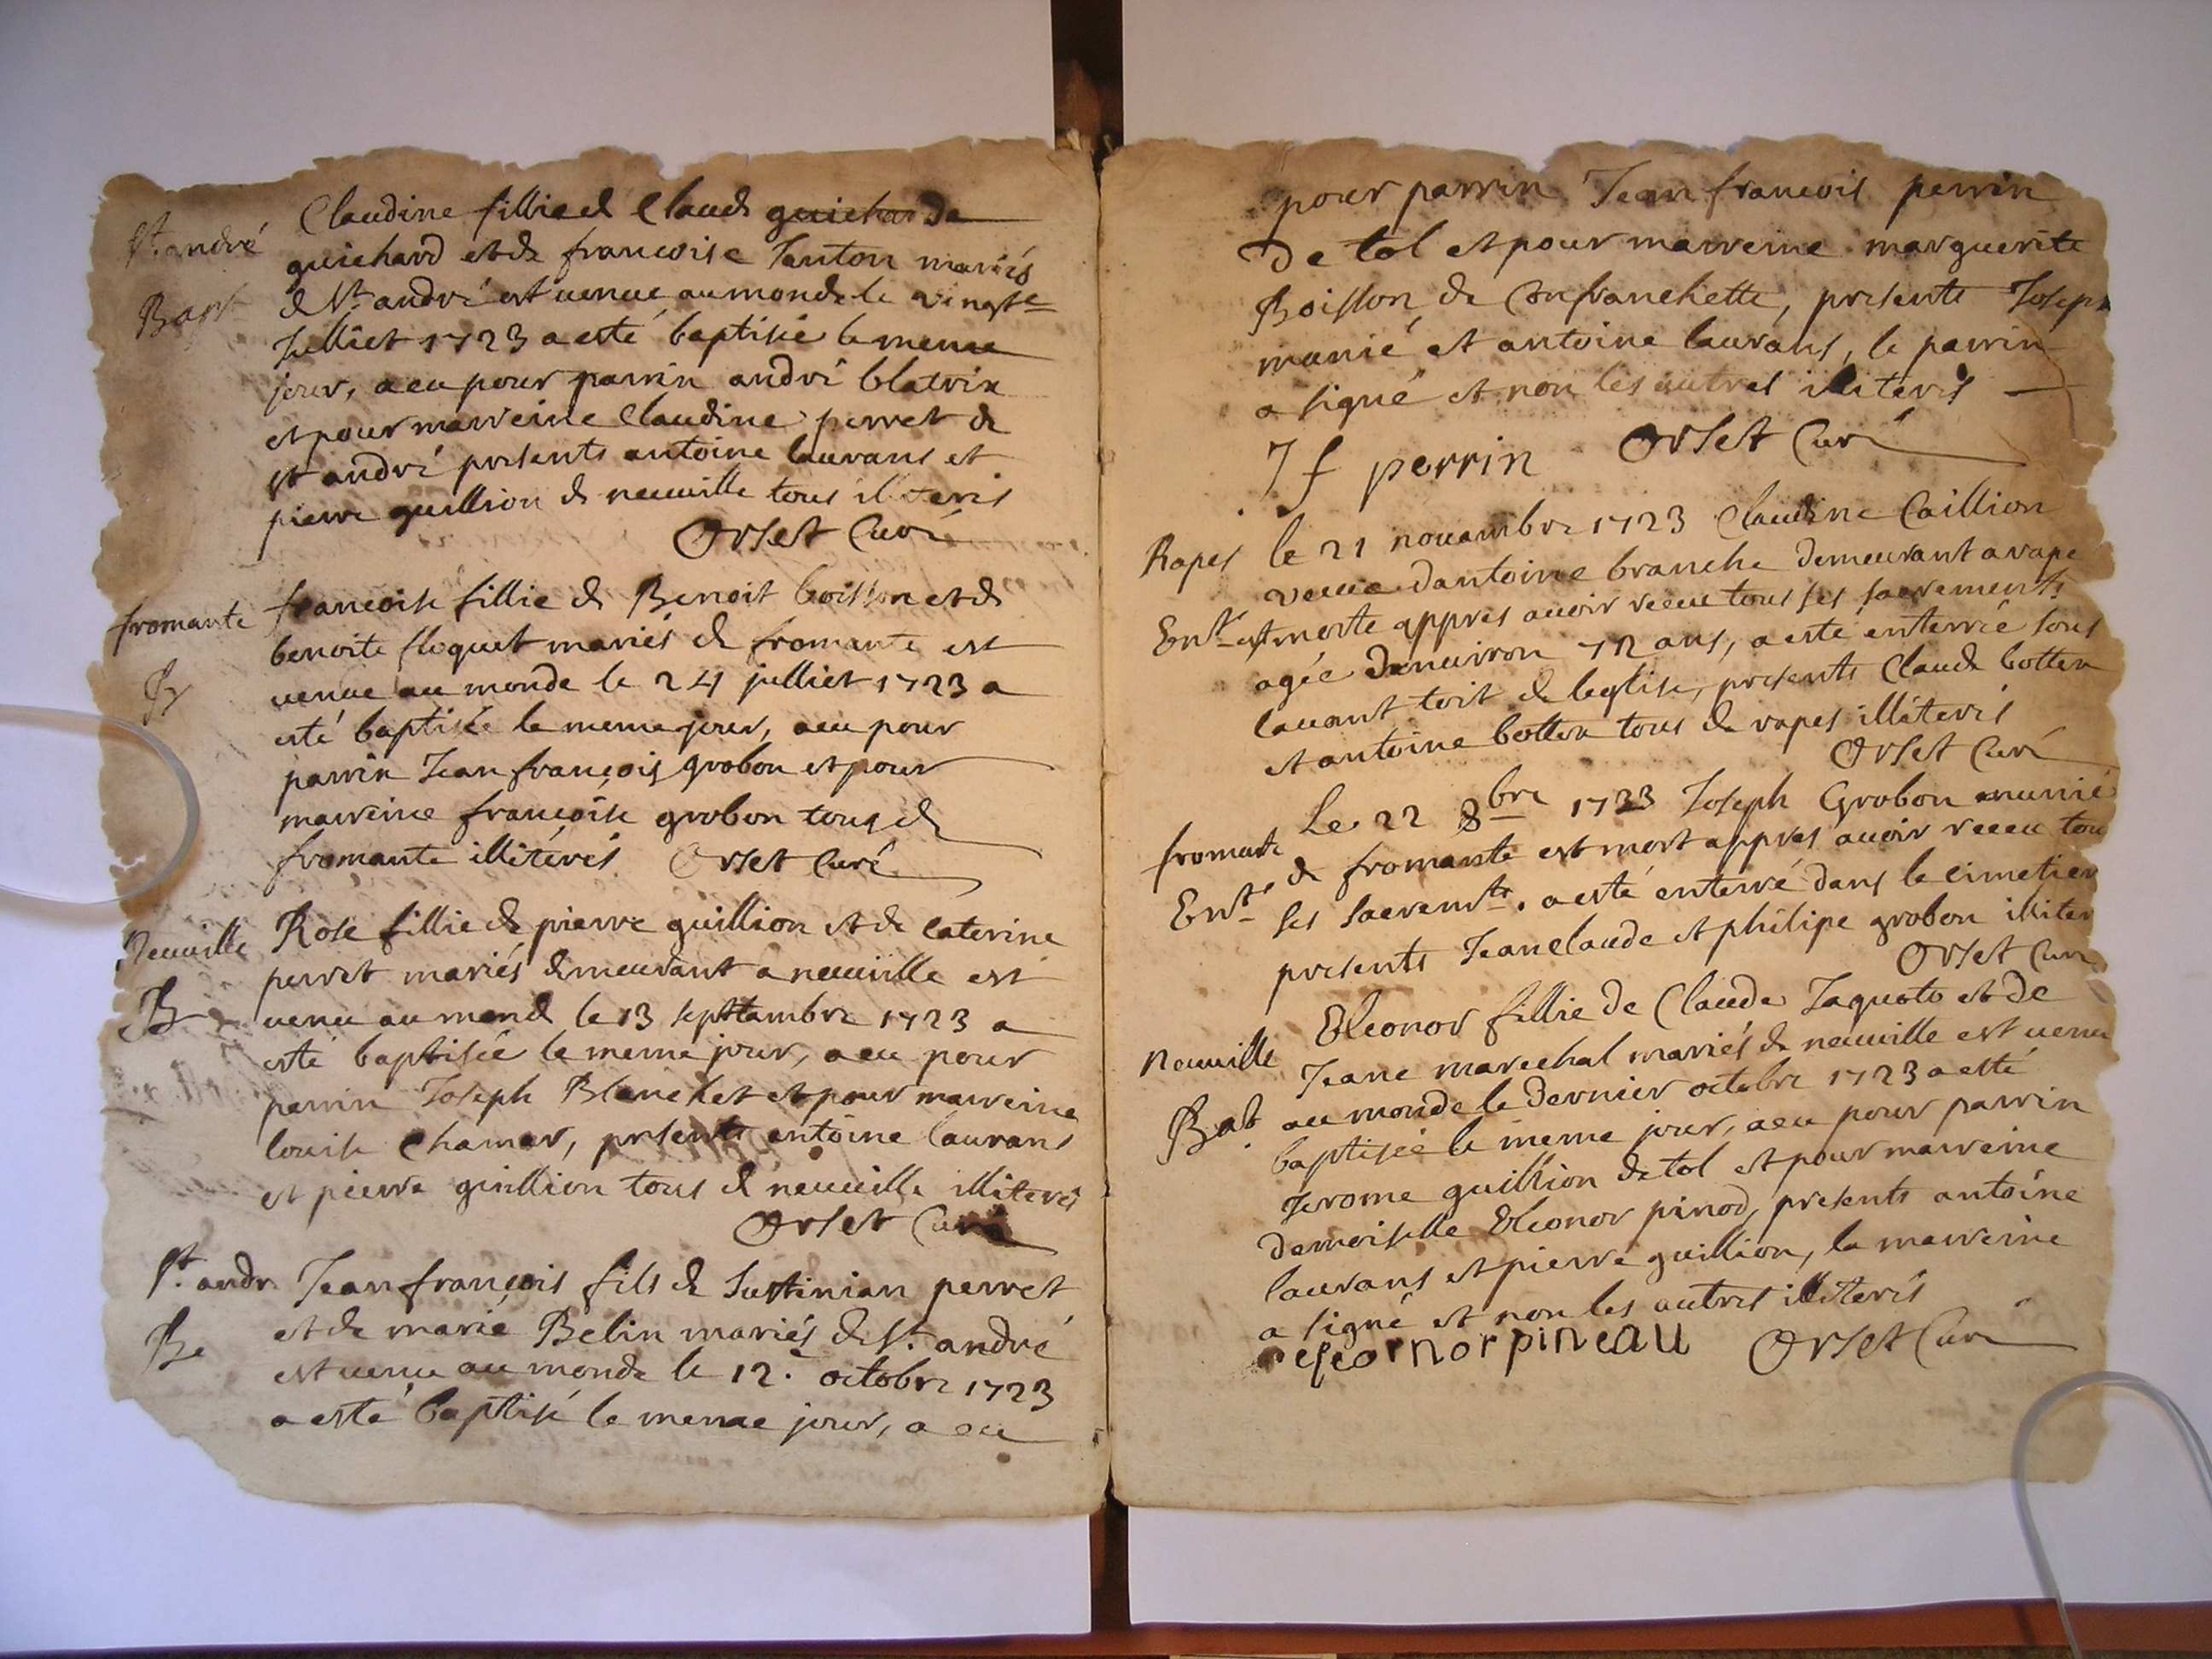 St andré
Bapt
Claudine fillie de Claude guichar de
guichard et de francoise Tanton mariés
de St andré est venue au monde le vingt
Julliet 1723 a esté baptisée le meme
jour, a eu pour parrin andré blatrix
et pour marreine Claudine perret de
st andré presents antoine laurans et
pierre guillion de neuville tous illiteris
Orset Curé
fromante
B
francoise fillie de Benoit boisson et de
benoite floquet mariés de fromante est
venue au monde le 24 julliet 1723 a
esté baptisée le meme jour, a eu pour
parrin Jean françois grobon et pour
marreine françoise grobon tous de
fromante illitérés Orset Curé
Neuville
B
Rose fillie de pierre guillion et de caterine
perret mariés demeurant a neuville est
venu au monde le 13 septtambre 1723 a
esté baptisée le meme jour, a eu pour
parrin Joseph Blanchet et pour marreine
louise Chamar, presents antoine laurans
et pierre guillion tous de neuville illiteris
Orset Curé
St. andr
Ba
Jean françois fils de Justinian perret
et de marie Belin mariés de St. andré
est venu au monde le 12. octobre 1723
a esté baptisé le meme jour, a eu
pour parrin Jean francois perrin
De tol et pour marreine marguerite
Boisson de Confranchette, presents Joseph
munié et antoine laurans, le parrin
a signé et non les autres illiteris
J f perrin Orset Curé
Rapes
Entt
le 21 nouambre 1723 Claudine Caillion
veuue dantoine branche demeurant a rape
est morte appres auoir receu tous ses sacrements
agée denuiron 72 ans, a esté enterrée sous
lauant toit de leglise, presents Claude botten
et antoine botten tous de rapes illiteris
Orset Curé
fromante
Entt
Le 22 8bre 1723 Joseph Grobon munié
de fromante est mort appres auoir receu tou
ses sacremts. a esté enterré dans le cimetier
presents Jean claude et philipe grobon illiter
Orset Cure
Neuville
Bat
Eleonor fillie de Claude Jaquoto et de
Jeane marechal mariés de neuville est venu
au monde le dernier octobre 1723 a esté
baptisée le meme jour, a eu pour parrin
Jerome guillion de tol et pour marreine
demoiselle Eleonor pinod, presents antoine
laurans et pierre guillion, la marreine
a signé et non les autres illiteris
eleonor pineau Orset Curé